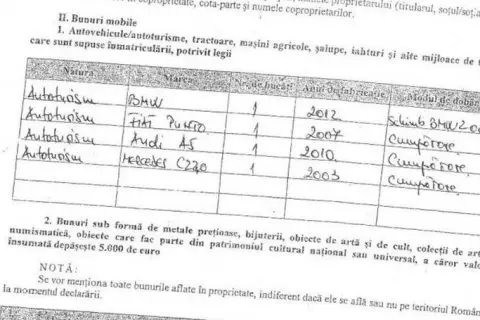 coproprietate, cota-parte și numele coproprietarilor. numele proprietarului (titularul, soțul/soția
II. Bunuri mobile
1. Autovehicule/autoturisme, tractoare, mașini agricole, șalupe, iahturi și alte mijloace de t
care sunt supuse înmatriculării, potrivit legii
Natura Marca Nr. de bucăți Anul de fabricație Modul de dobân
Autoturism BMW 1 2012 Schimb BMW
Autoturism FIAT PUNTO 1 2007 Cumpărare
Autoturism Audi A5 1 2010 Cumpărare
Autoturism MERCEDES C220 1 2003 Cumpărare
2. Bunuri sub formă de metale prețioase, bijuterii, obiecte de artă și de cult, colecții de art
numismatică, obiecte care fac parte din patrimoniul cultural național sau universal, a căror valo
însumată depășește 5.000 de euro
NOTĂ:
Se vor menționa toate bunurile aflate în proprietate, indiferent dacă ele se află sau nu pe teritoriul Român
la momentul declarării.